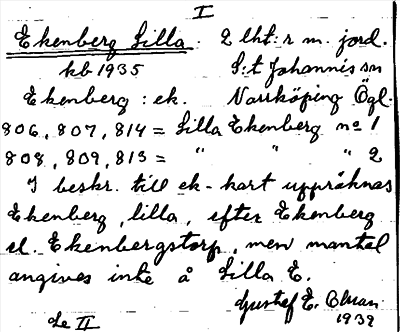 I
Ekenberg Lilla. 2 lht:r m. jord.
kb 1935 S:t Johannis sn
Ekenberg : ek. Norrköping Ögl.
806, 807, 814 = Lilla Ekenberg no 1
808, 809, 813 = " " " 2
I beskr. till ek-kart uppräknas
Ekenberg, lilla, efter Ekenberg
el. Ekenbergstorp, men mantal
angives inte å Lilla E.
Gustaf E. Olsson
Se II 1939